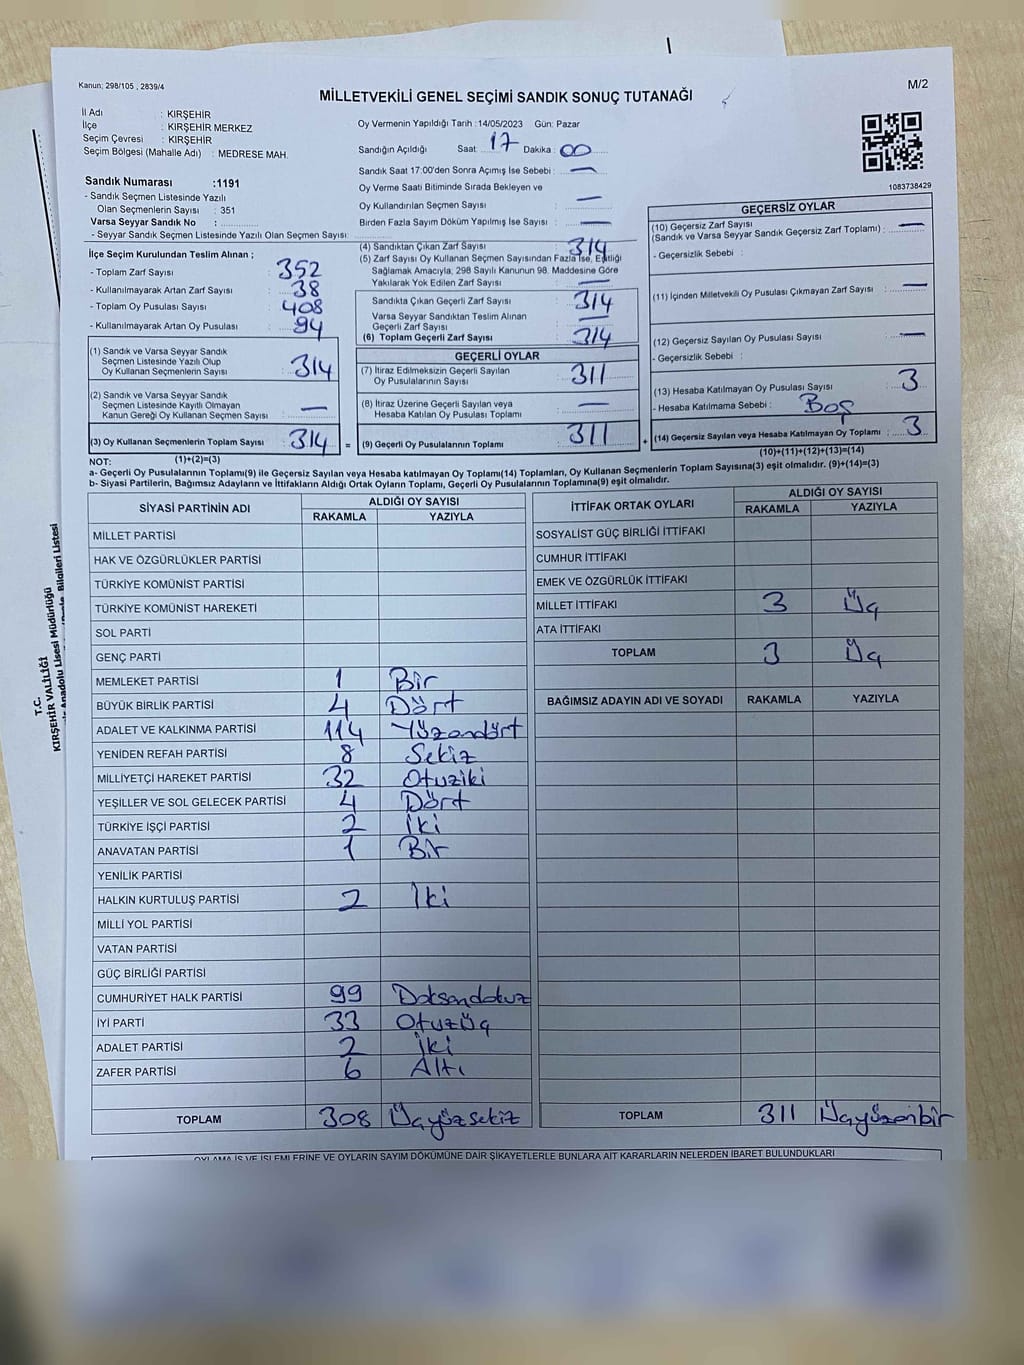 Kanun; 298/105 , 2839/4
M/2
MİLLETVEKİLİ GENEL SEÇİMİ SANDIK SONUÇ TUTANAĞI
İl Adı : KIRŞEHİR
İlçe : KIRŞEHİR MERKEZ
Seçim Çevresi : KIRŞEHİR
Seçim Bölgesi (Mahalle Adı) : MEDRESE MAH.
Sandık Numarası :1191
- Sandık Seçmen Listesinde Yazılı
Olan Seçmenlerin Sayısı : 351
Varsa Seyyar Sandık No :
- Seyyar Sandık Seçmen Listesinde Yazılı Olan Seçmen Sayısı:
Oy Vermenin Yapıldığı Tarih :14/05/2023 Gün: Pazar
Sandığın Açıldığı Saat: 17 Dakika : 00
Sandık Saat 17:00'den Sonra Açımış İse Sebebi : —
Oy Verme Saati Bitiminde Sırada Bekleyen ve
Oy Kullandırılan Seçmen Sayısı : —
Birden Fazla Sayım Döküm Yapılmış İse Sayısı : —
1083738429
İlçe Seçim Kurulundan Teslim Alınan ;
- Toplam Zarf Sayısı : 352
- Kullanılmayarak Artan Zarf Sayısı : 38
- Toplam Oy Pusulası Sayısı : 408
- Kullanılmayarak Artan Oy Pusulası : 94
(1) Sandık ve Varsa Seyyar Sandık
Seçmen Listesinde Yazılı Olup
Oy Kullanan Seçmenlerin Sayısı : 314
(2) Sandık ve Varsa Seyyar Sandık
Seçmen Listesinde Kayıtlı Olmayan
Kanun Gereği Oy Kullanan Seçmen Sayısı : —
(3) Oy Kullanan Seçmenlerin Toplam Sayısı : 314
(1)+(2)=(3)
(4) Sandıktan Çıkan Zarf Sayısı : 314
(5) Zarf Sayısı Oy Kullanan Seçmen Sayısından Fazla İse, Eşitliği
Sağlamak Amacıyla, 298 Sayılı Kanunun 98. Maddesine Göre
Yakılarak Yok Edilen Zarf Sayısı : —
Sandıkta Çıkan Geçerli Zarf Sayısı : 314
Varsa Seyyar Sandıktan Teslim Alınan
Geçerli Zarf Sayısı : —
(6) Toplam Geçerli Zarf Sayısı : 314
GEÇERLİ OYLAR
(7) İtiraz Edilmeksizin Geçerli Sayılan
Oy Pusulalarının Sayısı : 311
(8) İtiraz Üzerine Geçerli Sayılan veya
Hesaba Katılan Oy Pusulası Toplamı : —
= (9) Geçerli Oy Pusulalarının Toplamı : 311
GEÇERSİZ OYLAR
(10) Geçersiz Zarf Sayısı : —
(Sandık ve Varsa Seyyar Sandık Geçersiz Zarf Toplamı) :
- Geçersizlik Sebebi :
(11) İçinden Milletvekili Oy Pusulası Çıkmayan Zarf Sayısı : —
(12) Geçersiz Sayılan Oy Pusulası Sayısı : —
- Geçersizlik Sebebi :
(13) Hesaba Katılmayan Oy Pusulası Sayısı : 3
- Hesaba Katılmama Sebebi : Boş
+ (14) Geçersiz Sayılan veya Hesaba Katılmayan Oy Toplamı : 3
(10)+(11)+(12)+(13)=(14)
NOT:
a- Geçerli Oy Pusulalarının Toplamı(9) ile Geçersiz Sayılan veya Hesaba katılmayan Oy Toplamı(14) Toplamları, Oy Kullanan Seçmenlerin Toplam Sayısına(3) eşit olmalıdır. (9)+(14)=(3)
b- Siyasi Partilerin, Bağımsız Adayların ve İttifakların Aldığı Ortak Oyların Toplamı, Geçerli Oy Pusulalarının Toplamına(9) eşit olmalıdır.
SİYASİ PARTİNİN ADI ALDIĞI OY SAYISI
RAKAMLA YAZIYLA
MİLLET PARTİSİ
HAK VE ÖZGÜRLÜKLER PARTİSİ
TÜRKİYE KOMÜNİST PARTİSİ
TÜRKİYE KOMÜNİST HAREKETİ
SOL PARTİ
GENÇ PARTİ
MEMLEKET PARTİSİ 1 Bir
BÜYÜK BİRLİK PARTİSİ 4 Dört
ADALET VE KALKINMA PARTİSİ 114 Yüzondört
YENİDEN REFAH PARTİSİ 8 Sekiz
MİLLİYETÇİ HAREKET PARTİSİ 32 Otuziki
YEŞİLLER VE SOL GELECEK PARTİSİ 4 Dört
TÜRKİYE İŞÇİ PARTİSİ 2 İki
ANAVATAN PARTİSİ 1 Bir
YENİLİK PARTİSİ
HALKIN KURTULUŞ PARTİSİ 2 İki
MİLLİ YOL PARTİSİ
VATAN PARTİSİ
GÜÇ BİRLİĞİ PARTİSİ
CUMHURİYET HALK PARTİSİ 99 Doksandokuz
İYİ PARTİ 33 Otuzüç
ADALET PARTİSİ 2 İki
ZAFER PARTİSİ 6 Altı
TOPLAM 308 Üçyüzsekiz
İTTİFAK ORTAK OYLARI ALDIĞI OY SAYISI
RAKAMLA YAZIYLA
SOSYALİST GÜÇ BİRLİĞİ İTTİFAKI
CUMHUR İTTİFAKI
EMEK VE ÖZGÜRLÜK İTTİFAKI
MİLLET İTTİFAKI 3 Üç
ATA İTTİFAKI
TOPLAM 3 Üç
BAĞIMSIZ ADAYIN ADI VE SOYADI RAKAMLA YAZIYLA
TOPLAM 311 Üçyüzonbir
OYLAMA İŞ VE İŞLEMLERİNE VE OYLARIN SAYIM DÖKÜMÜNE DAİR ŞİKAYETLERLE BUNLARA AİT KARARLARIN NELERDEN İBARET BULUNDUKLARI
T.C.
KIRŞEHİR VALİLİĞİ
Anadolu Lisesi Müdürlüğü
Bilgileri Listesi